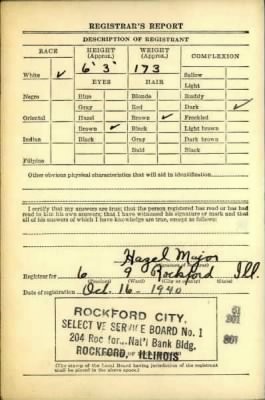 REGISTRAR'S REPORT
DESCRIPTION OF REGISTRANT
RACE HEIGHT (Approx.) WEIGHT (Approx.) COMPLEXION
White ✓ 6' 3" 173 Sallow
EYES HAIR Light
Negro Blue Blonde Ruddy
Gray Red Dark ✓
Oriental Hazel Brown ✓ Freckled
Brown ✓ Black Light brown
Indian Black Gray Dark brown
Bald Black
Filipino
Other obvious physical characteristics that will aid in identification
I certify that my answers are true; that the person registered has read or has had
read to him his own answers; that I have witnessed his signature or mark and that
all of his answers of which I have knowledge are true, except as follows:
Hazel Major
Registrar for 6 9 Rockford Ill.
(Precinct) (Ward) (City or county) (State)
Date of registration Oct. 16 - 1940
ROCKFORD CITY,
SELECTIVE SERVICE BOARD No. 1
204 Nat'l Bank Bldg.
ROCKFORD, ILLINOIS
(The stamp of the Local Board having jurisdiction of the registrant
shall be placed in the above space.)